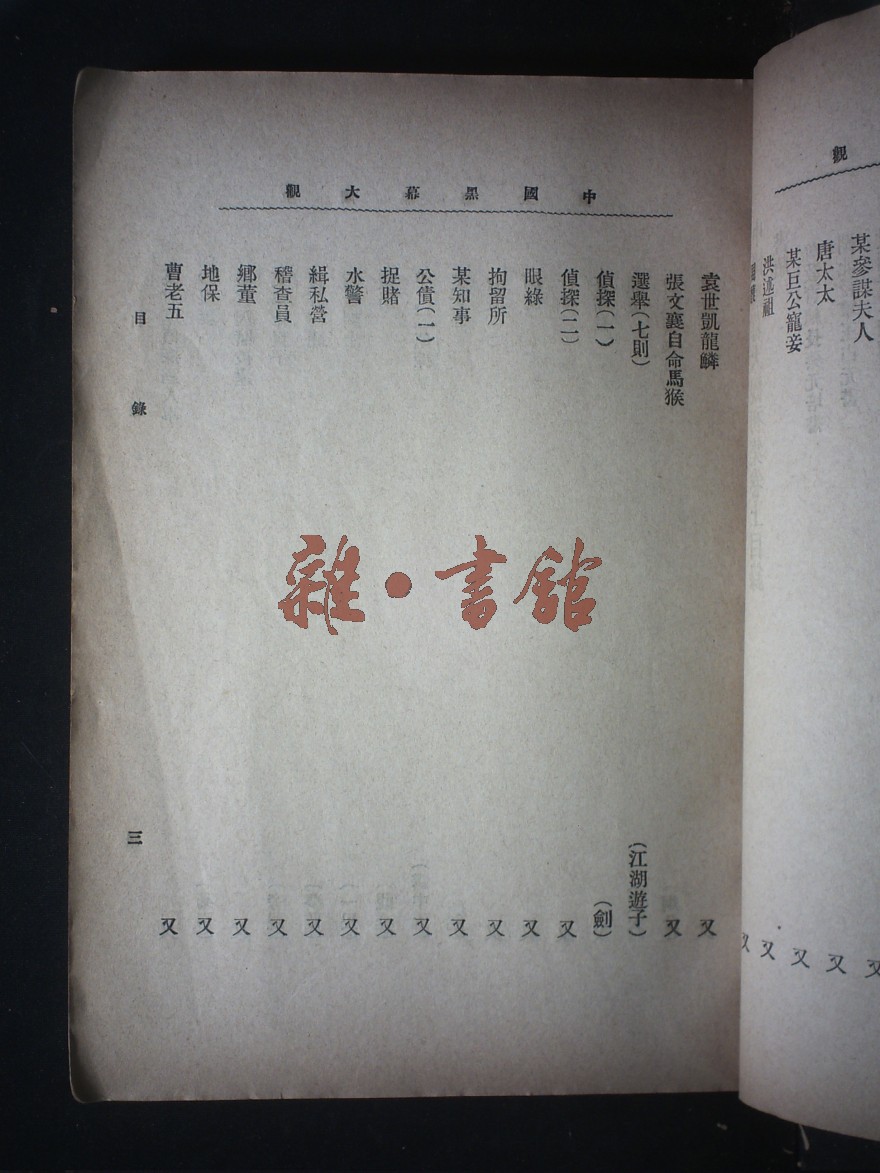 觀
某參謀夫人
唐太太
又
某巨公寵妾
又
洪述祖
又
又
中國黑幕大觀
袁世凱龍鱗
又
張文襄自命馬猴
又
選舉(七則)
(江湖遊子)
偵探(一)
(劍)
偵探(二)
又
眼綠
又
拘留所
又
某知事
又
公債(一)
又
捉賭
又
水警
又
緝私營
又
稽查員
又
鄉董
又
地保
又
曹老五
又
目錄
三
雜·書館